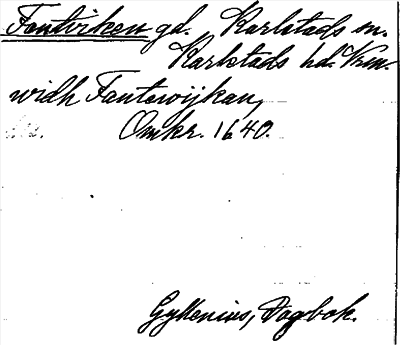 Fantviken gd. Karlstads sn.
Karlstads hd. Vrm.
widh Fantewijkan,
Omkr. 1640.
Gyllenius, Dagbok.